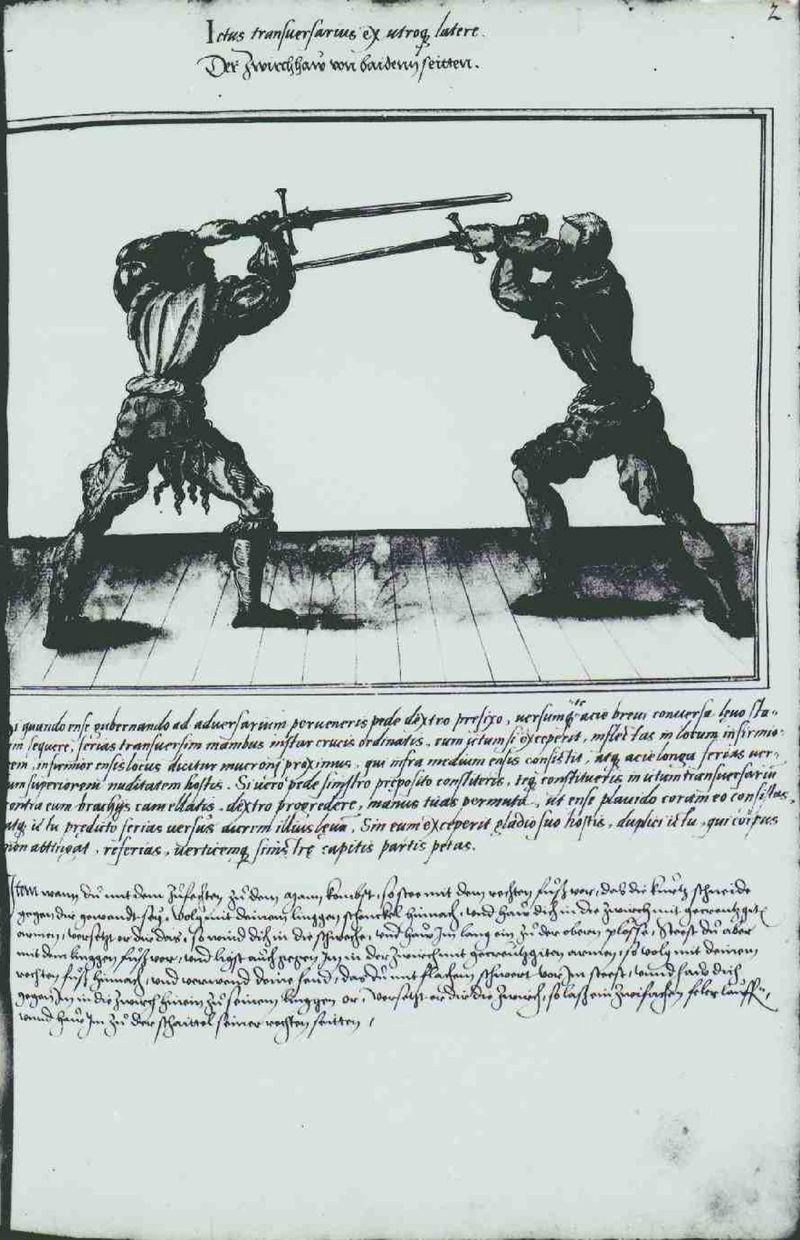 2
Ictus transuersarius ex utroq; latere.
Der zwirchhaw von baiden seitten.
Si quando ense gubernando ad aduersarium perueneris pede dextro prefixo, uersumq; te acie breui conuersa leuo sta-
tim sequere, ferias transuersim manibus instar crucis ordinatis. eum ictum si exceperit, inflectas in locum infirmio-
rem, infirmior ensis locus dicitur mucroni proximus, qui infra medium ensis consistit, atq; acie longa ferias uer-
sum superiorem nuditatem hostis. Si uero pede sinistro preposito constiteris, teq; constitueris in ictum transuersariu
contra eum brachijs cancellatis, dextro progredere, manus tuas permuta, ut ense plauido coram eo consistas,
atq; ictu predicto ferias uersus aurem illius leuam, Sin eum exceperit gladio suo hostis, duplici ictu, qui corpus
non attingat, referias, uerticemq; sinistre capitis partis petas.
Item wann du mit dem zufechten zu dem mann kombst, so stee mit dem rechten fuß vor, das die kurtz schneide
gegen dir gewandt sey, volg mit deinem linggen schenckel hinnach, vnd haw dich in die zwirch mit gecreutzgite
armen, versetzt er dir das, so wind dich in die schweche, vnd haw Im lang ein zu der obern plosse, Steest du aber
mit dem linggen fuß vor, vnd ligst auch gegen Im in der zwirch mit gecreutzgiten armen, so volg mit deinem
rechten fuß hinnach, vnd verwend deine hend, das du mit flachem schwert vor Im steest, vnnd haw dich
gegen Im in die zwirch hinein zu seinem linggen or, Versetzt er dir die zwirch, so laß ein zwifachen feler lauffn,
vnnd haw Im zu der schaittel seiner rechten seitten,